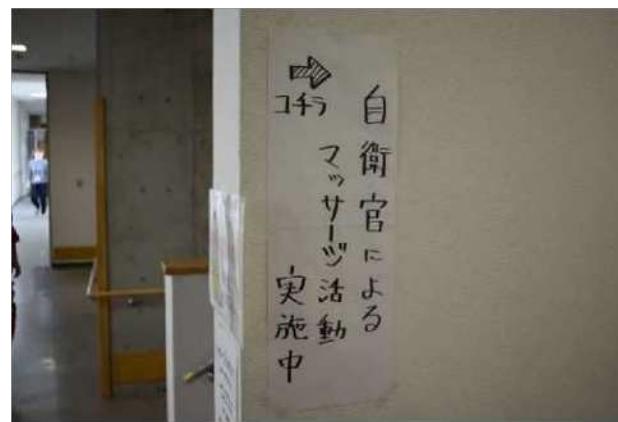 自衛官による
マッサージ活動
実施中
コチラ